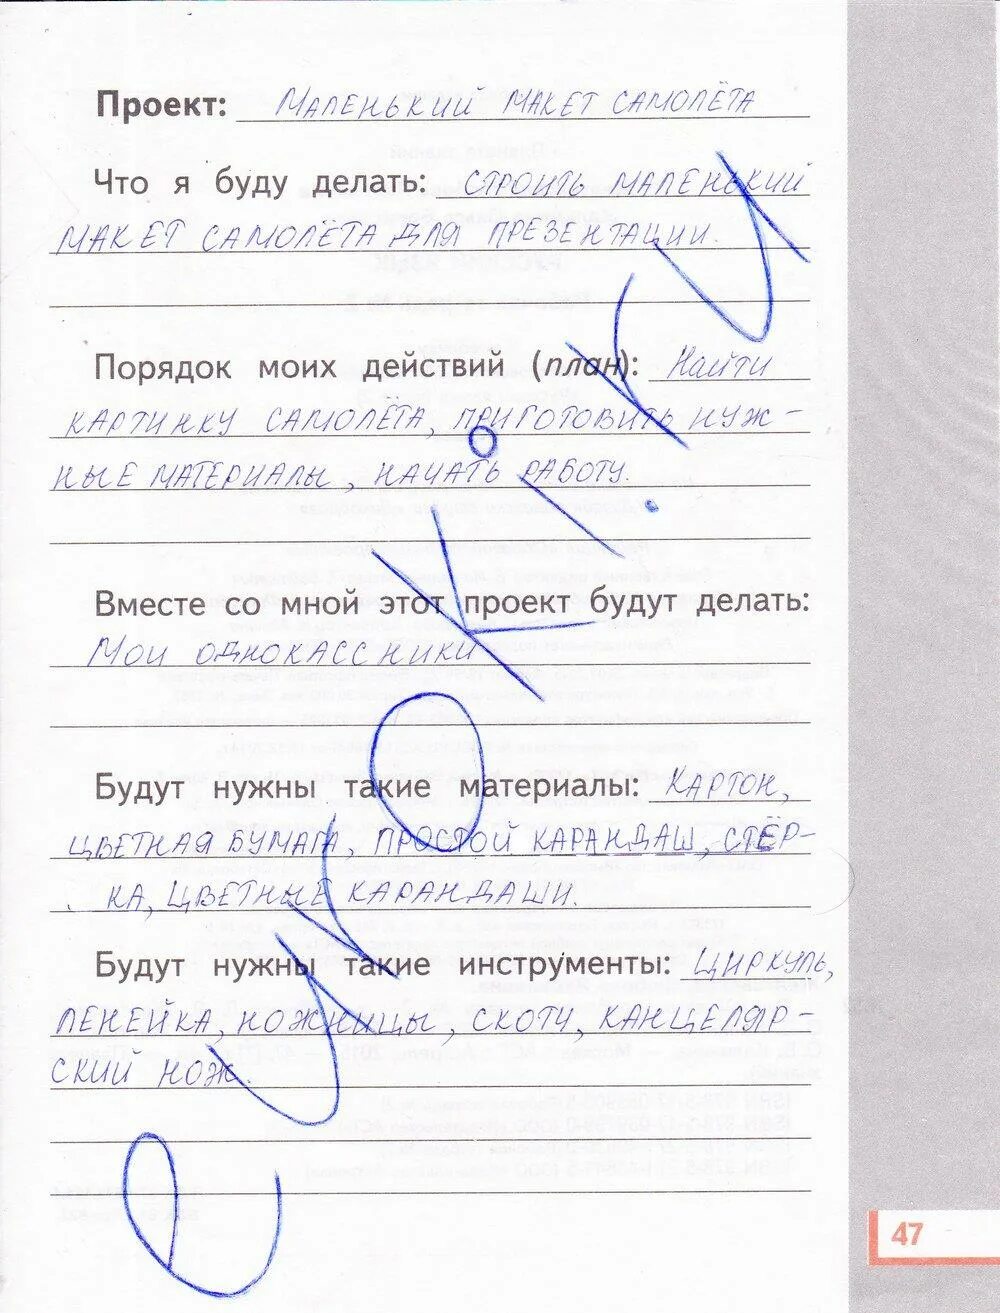 Проект: Маленький макет самолёта
Что я буду делать: строить маленький
макет самолёта для презентации.
Порядок моих действий (план): Найти
картинку самолёта, приготовить нуж-
ные материалы, начать работу.
Вместе со мной этот проект будут делать:
Мои однокассники
Будут нужны такие материалы: Картон,
цветная бумага, простой карандаш, стёр-
ка, цветные карандаши.
Будут нужны такие инструменты: Циркуль,
ленейка, ножницы, скотч, канцеляр-
ский нож.
47